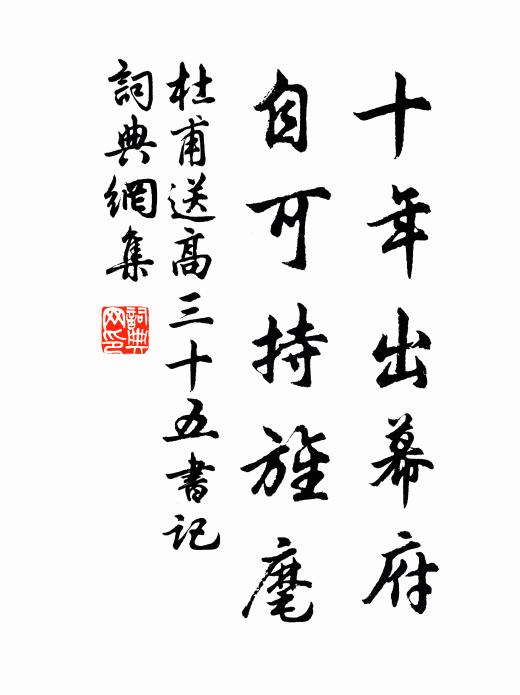 十年出幕府
自可持旌麾
杜甫送高三十五書記
詞典網集
詞典網印